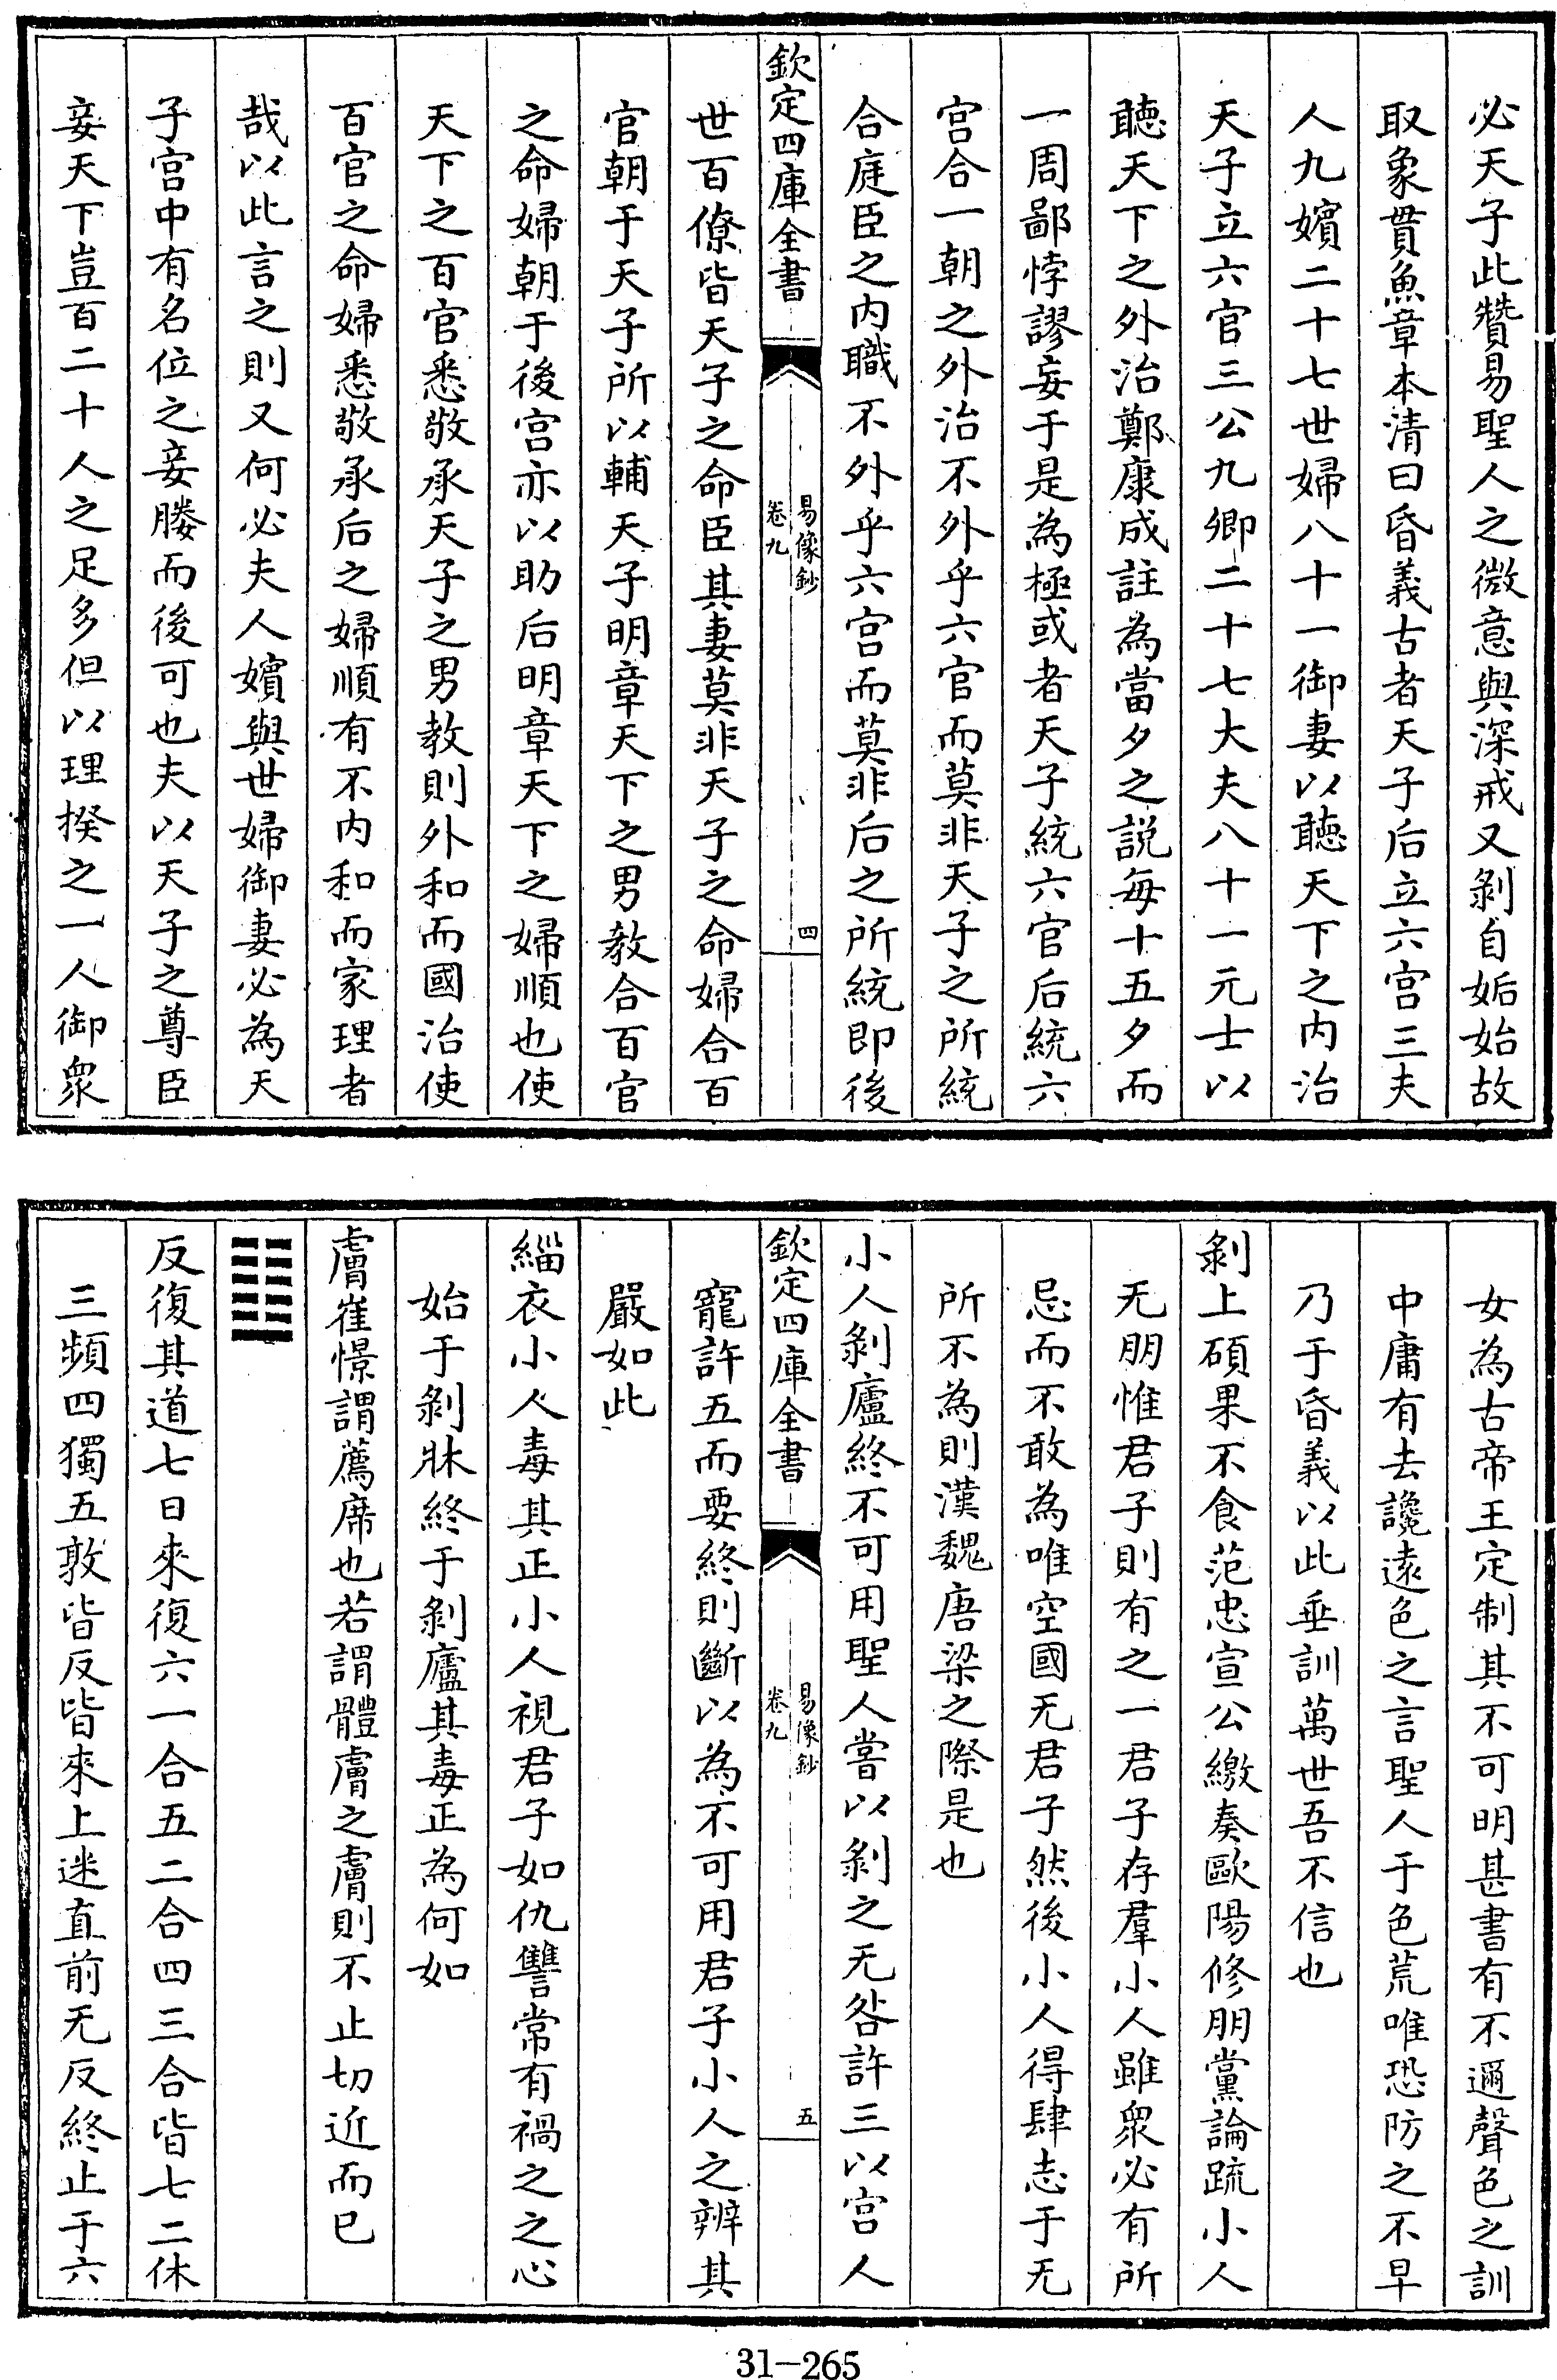 必天子此贊易聖人之微意與深戒又剝自姤始故
取象貫魚章本清曰昏義古者天子后立六宫三夫
人九嬪二十七世婦八十一御妻以聽天下之内治
天子立六官三公九卿二十七大夫八十一元士以
聽天下之外治鄭康成註為當夕之説每十五夕而
一周鄙悖謬妄于是為極或者天子統六官后統六
宫合一朝之外治不外乎六官而莫非天子之所統
合庭臣之内職不外乎六宫而莫非后之所統即後
欽定四庫全書
易像鈔
卷九
四
世百僚皆天子之命臣其妻莫非天子之命婦合百
官朝于天子所以輔天子明章天下之男教合百官
之命婦朝于後宫亦以助后明章天下之婦順也使
天下之百官悉敬承天子之男教則外和而國治使
百官之命婦悉敬承后之婦順有不内和而家理者
哉以此言之則又何必夫人嬪與世婦御妻必為天
子宫中有名位之妾媵而後可也夫以天子之尊臣
妾天下豈百二十人之足多但以理揆之一人御衆
女為古帝王定制其不可明甚書有不邇聲色之訓
中庸有去讒逺色之言聖人于色荒唯恐防之不早
乃于昏義以此垂訓萬世吾不信也
剝上碩果不食范忠宣公繳奏歐陽修朋黨論疏小人
无朋惟君子則有之一君子存羣小人雖衆必有所
忌而不敢為唯空國无君子然後小人得肆志于无
所不為則漢魏唐梁之際是也
小人剝廬終不可用聖人嘗以剝之无咎許三以宫人
欽定四庫全書
易像鈔
卷九
五
寵許五而要終則斷以為不可用君子小人之辨其
嚴如此
緇衣小人毒其正小人視君子如仇讐常有禍之之心
始于剝牀終于剝廬其毒正為何如
膚崔憬謂薦席也若謂體膚之膚則不止切近而已
反復其道七日來復六一合五二合四三合皆七二休
三頻四獨五敦皆反皆來上迷直前无反終止于六
31-265